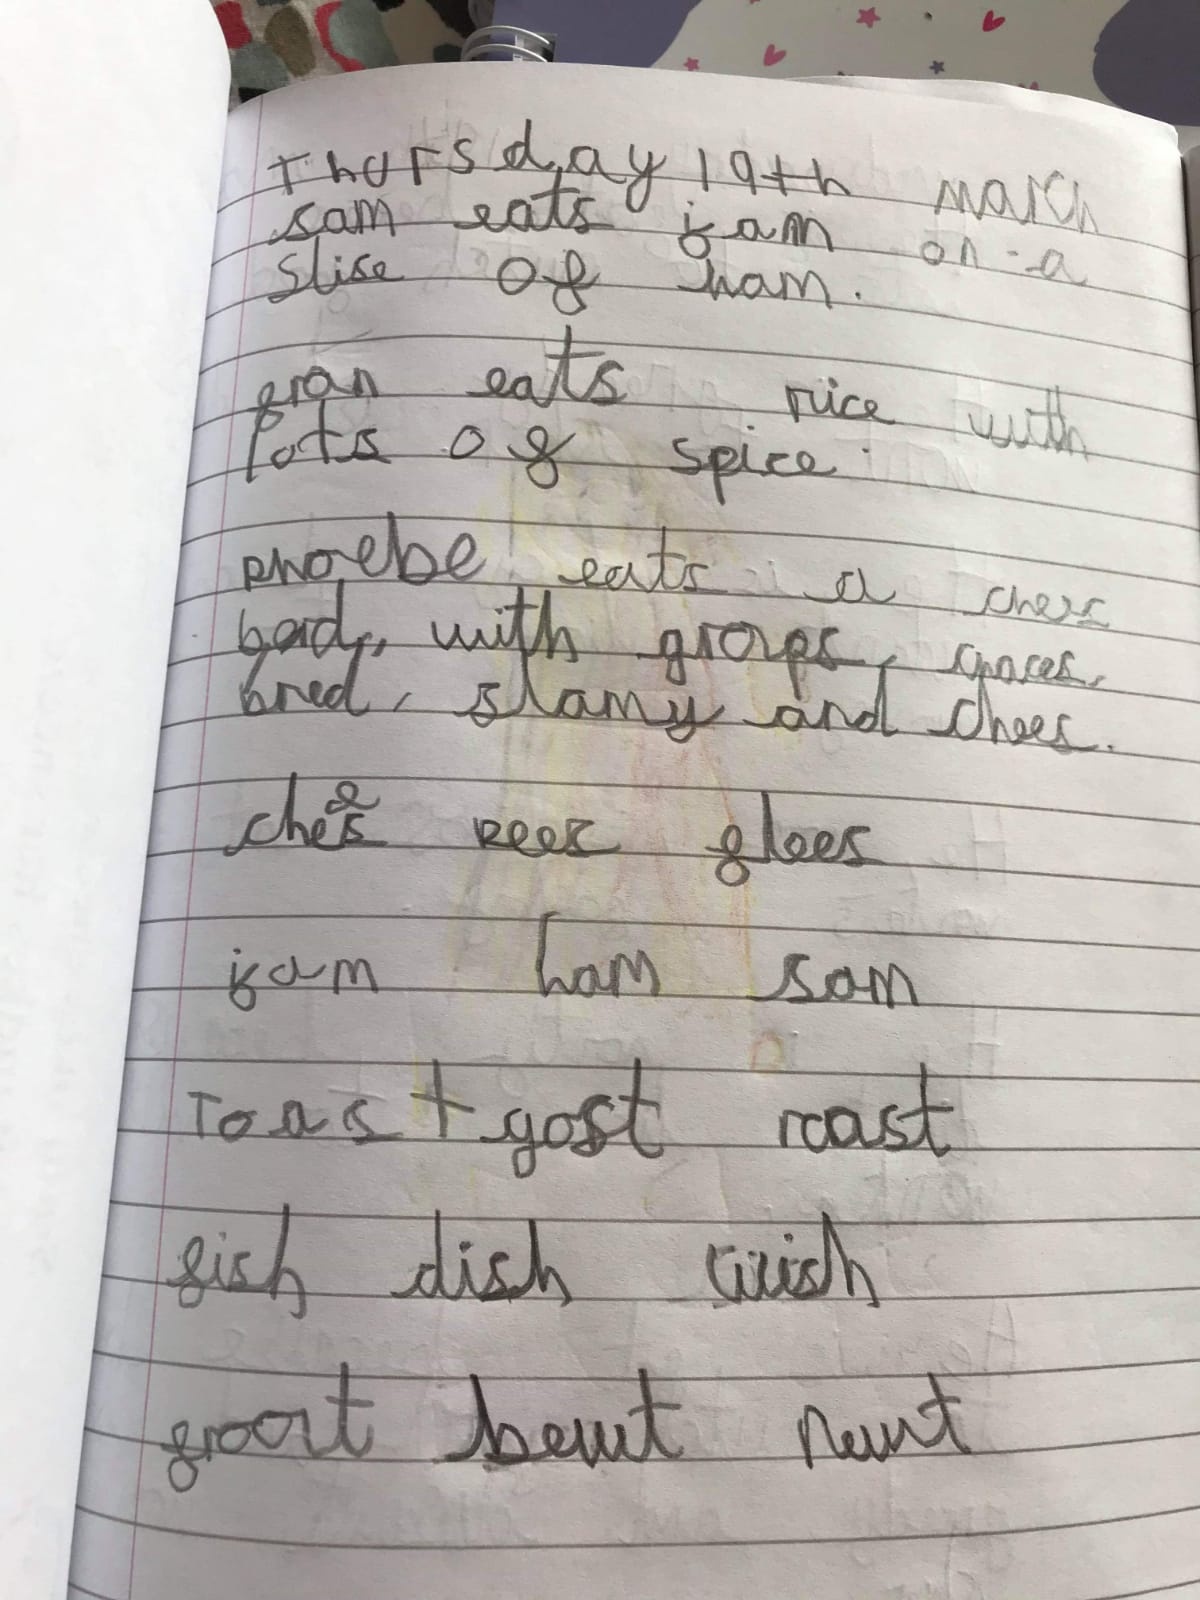 Thursday 19th march
sam eats jam on a
slise of ham.
gran eats rice with
lots of spice.
phoebe eats a ches
bord, with grops,
bred, slamy and chees.
chees peex
jam ham sam
Toast gost roast
fish dish wish